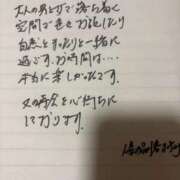 大人のあとすで落ち着く
空間で色々お話したり
自然とまったりと一緒に
過ごすお時間は....
本当に楽しかったです。
又の再会を心待ちに
しております。